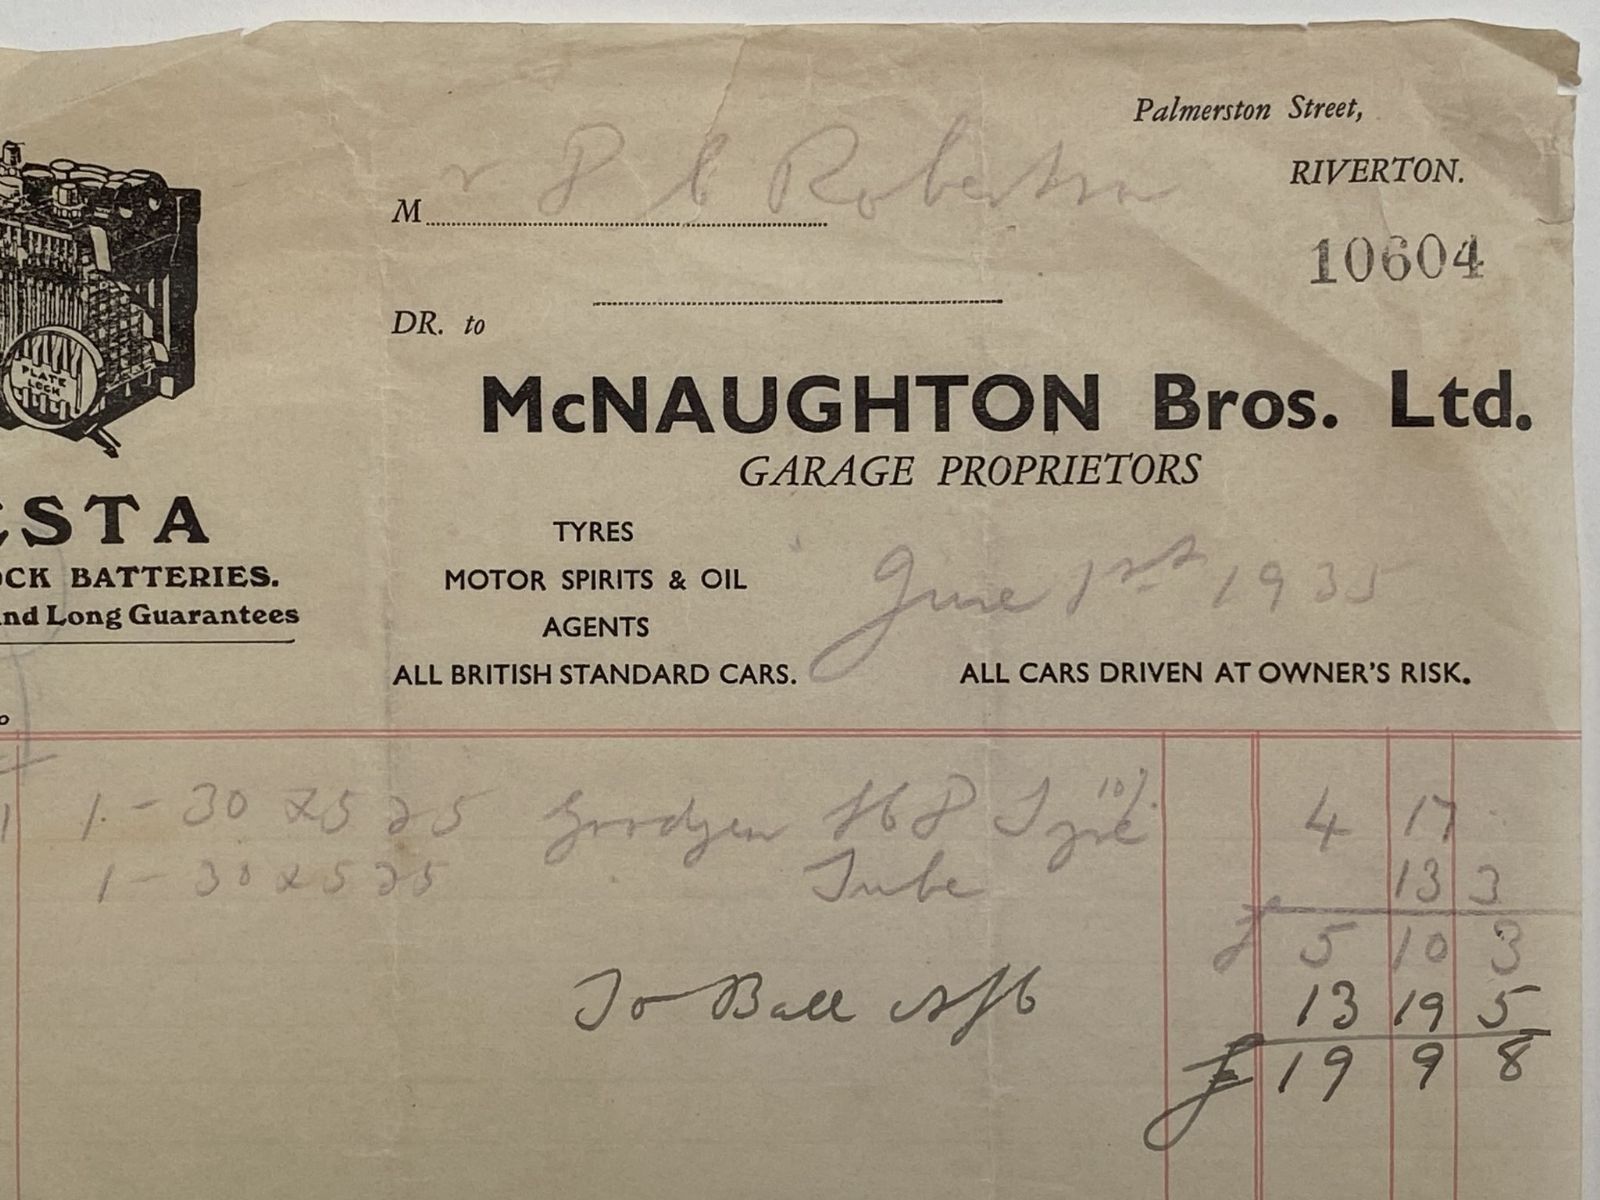 Palmerston Street,
RIVERTON.
M r P C Robertson
10604
DR. to
McNAUGHTON Bros. Ltd.
GARAGE PROPRIETORS
TYRES
MOTOR SPIRITS & OIL
AGENTS
ALL BRITISH STANDARD CARS.
June 1st 1935
ALL CARS DRIVEN AT OWNER'S RISK.
PLATE
LOCK
STA
CK BATTERIES.
nd Long Guarantees
1 1 - 30 x 5 25 Goodyear Tyre 10% 4 17
1 - 30 x 5 25 Tube 13 3
£ 5 10 3
To Ball 13 19 5
£ 19 9 8